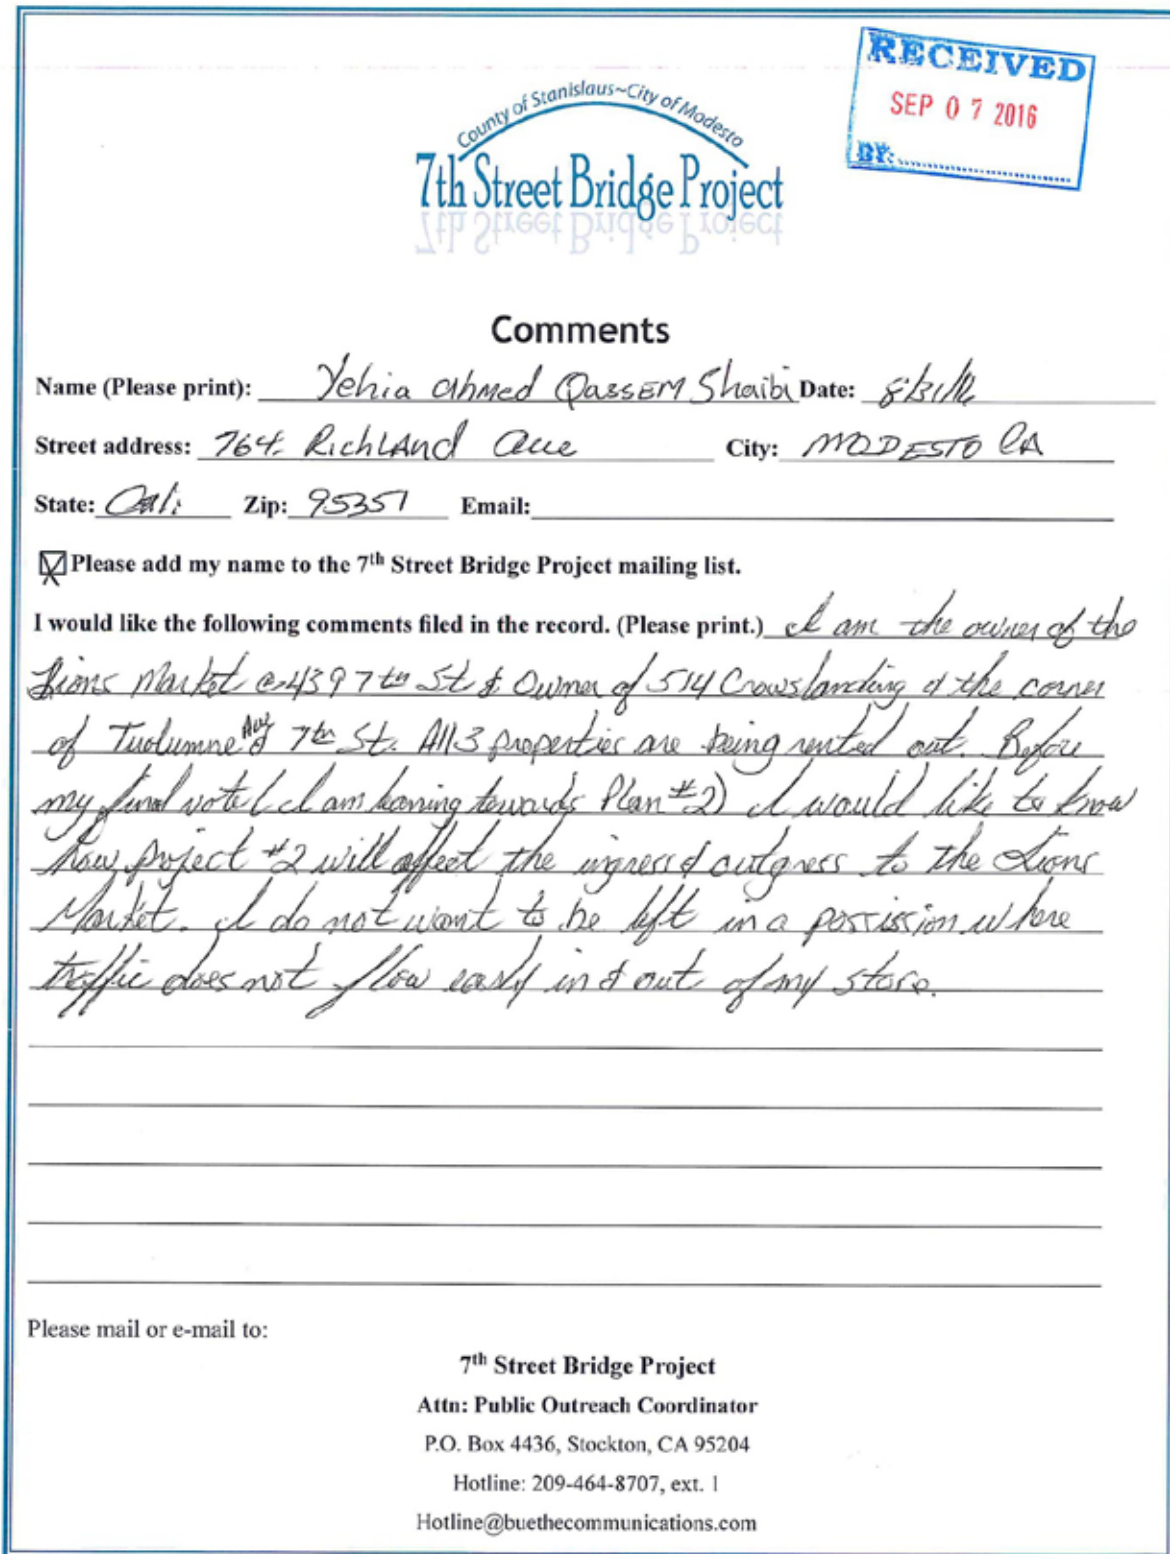 RECEIVED
SEP 07 2016
BY:
County of Stanislaus~City of Modesto
7th Street Bridge Project
Comments
Name (Please print): Yehia Ahmed QassEM Shaibi Date: 8/31/16
Street address: 764 RichLAnd Ave City: MODESTO CA
State: Cali Zip: 95351 Email:
Please add my name to the 7th Street Bridge Project mailing list.
I would like the following comments filed in the record. (Please print.) I am the owner of the
Lions Market @ 439 7th St & Owner of 514 Crowslanding & the corner
of Tuolumne Ave & 7th St. All 3 properties are being rented out. Before
my final vote (I am leaning towards Plan #2) I would like to know
how project #2 will affect the ingress & outgress to the Lions
Market. I do not want to be left in a possission where
traffic does not flow easly in & out of my store.
Please mail or e-mail to:
7th Street Bridge Project
Attn: Public Outreach Coordinator
P.O. Box 4436, Stockton, CA 95204
Hotline: 209-464-8707, ext. 1
Hotline@buethecommunications.com